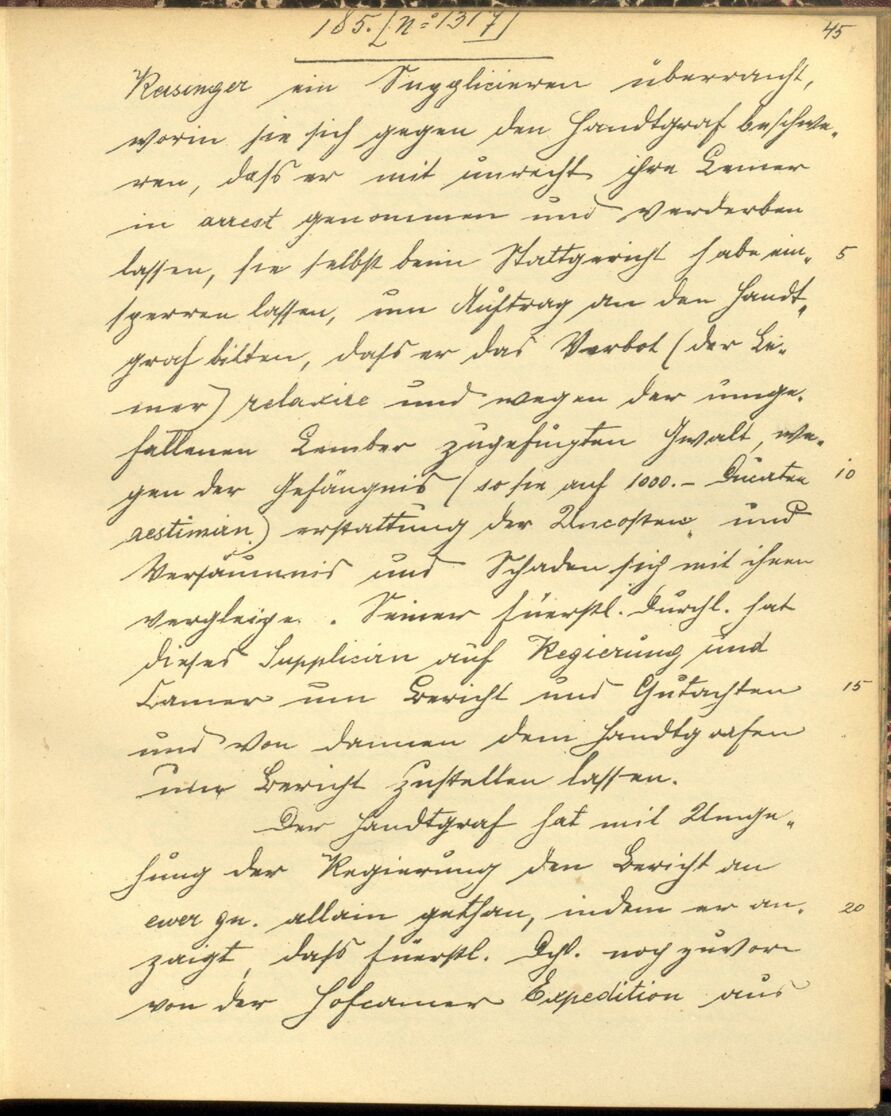 185. [Nº 1317]
45
Reisinger ein Supplicieren überraicht,
worin sie sich gegen den Handtgraf beschwe-
ren, dass er mit unrecht ihre Lemer
in arrest genommen und verderben
lassen, sie selbst beim Stattgericht habe ein- 5
sperren lassen, um Auftrag an den Handt-
graf bitten, dass er das Verbot (der Le-
mer) relaxire und wegen der umge-
fallenen Lember zugefügten Gwalt, we-
gen der Gefängnis (so sie auf 1000.- Ducaten 10
aestimirn) erstattung der Uncosten und
Versäumnis und Schaden sich mit ihnen
vergleiche. Seiner fürstl. Durchl. hat
dieses Supplicirn auf Regierung und
Camer um Bericht und Gutachten 15
und von dannen dem Handtgrafen
umb Bericht zustellen lassen.
Der Handtgraf hat mit Umge-
hung der Regierung den Bericht an
ewer gn. allain gethan, indem er an-
20
zaigt, dass fürstl. Dchl. noch zuvor
von der Hofcamer Expedition aus